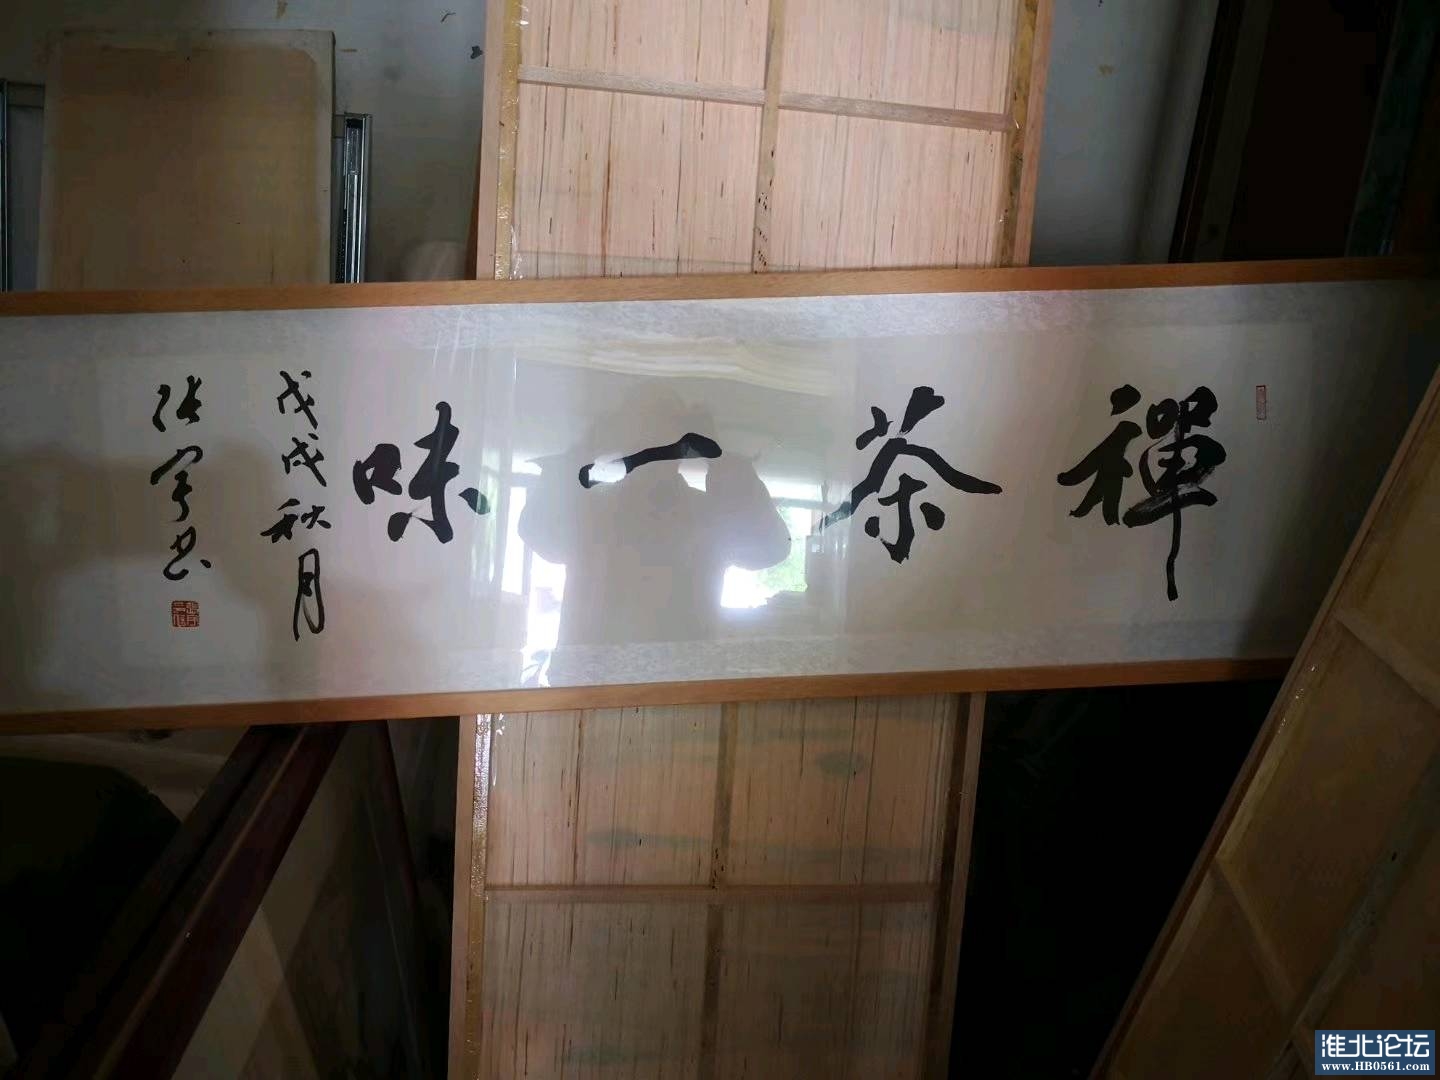 禪茶一味
戊戌秋月
张宇书
淮北论坛
www.HB0561.com